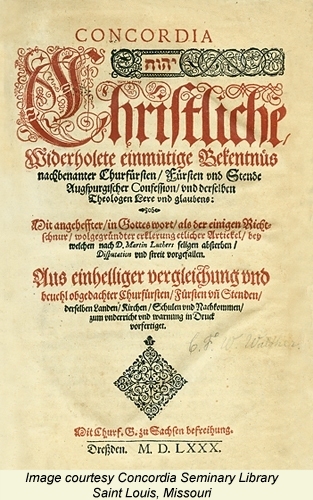 CONCORDIA
יהוה
Christliche/
Widerholete einmütige Bekentnüs
nachbenanter Churfürsten/ Fürsten vnd Stende
Augspurgischer Confession/ vnd derselben
Theologen Lere vnd glaubens:
Mit angeheffter/ in Gottes wort/ als der einigen Richt-
schnur/ wolgegründter erklerung etlicher Artickel/ bey
welchen nach D. Martin Luthers seligen absterben/
Disputation vnd streit vorgefallen.
Aus einhelliger vergleichung vnd
beuehl obgedachter Churfürsten/ Fürsten vñ Stenden/
derselben Landen/ Kirchen/ Schulen vnd Nachkommen/
zum vnderricht vnd warnung in Druck
vorfertiget.
C. F. W. Walther
Mit Churf. G. zu Sachsen befreihung.
Dreßden. M. D. LXXX.
Image courtesy Concordia Seminary Library
Saint Louis, Missouri